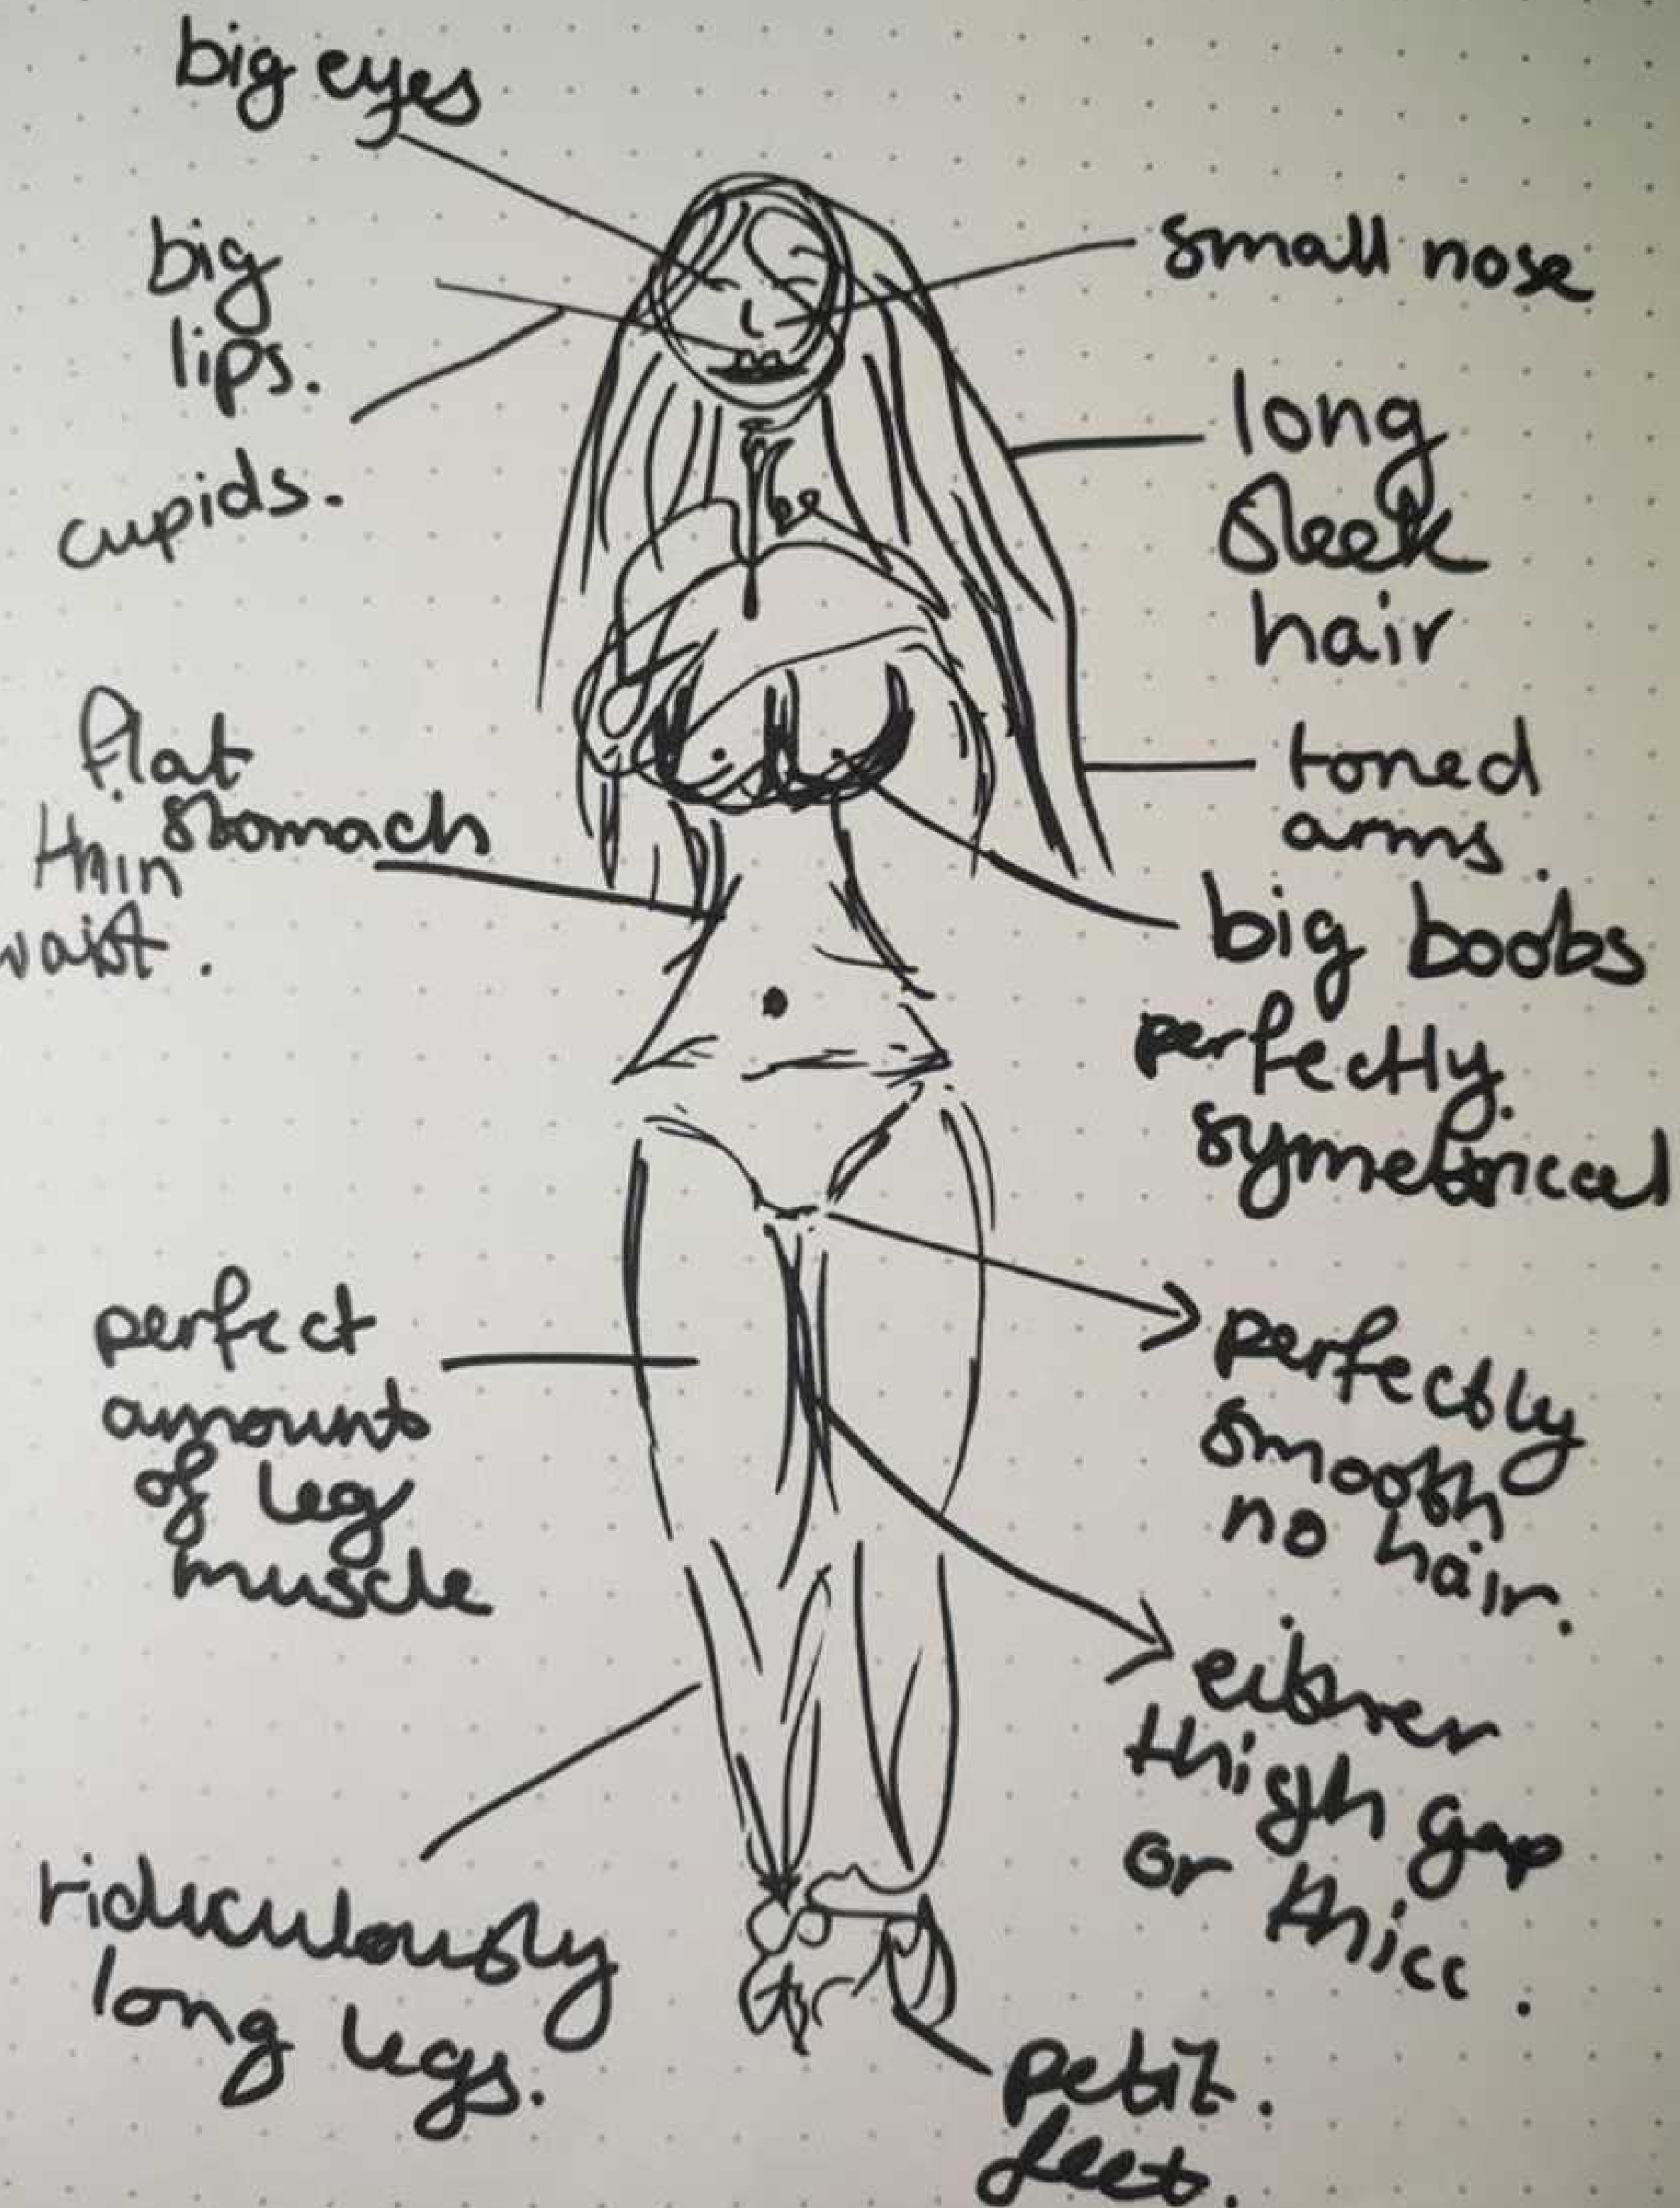 big eyes
big
lips.
cupids.
flat
stomach
thin
waist.
perfect
amounts
of leg
muscle
ridiculously
long legs.
small nose
long
sleek
hair
toned
arms.
big boobs
perfectly
symetrical
perfectly
smooth
no hair.
either
thigh gap
or thicc.
petit.
feet.